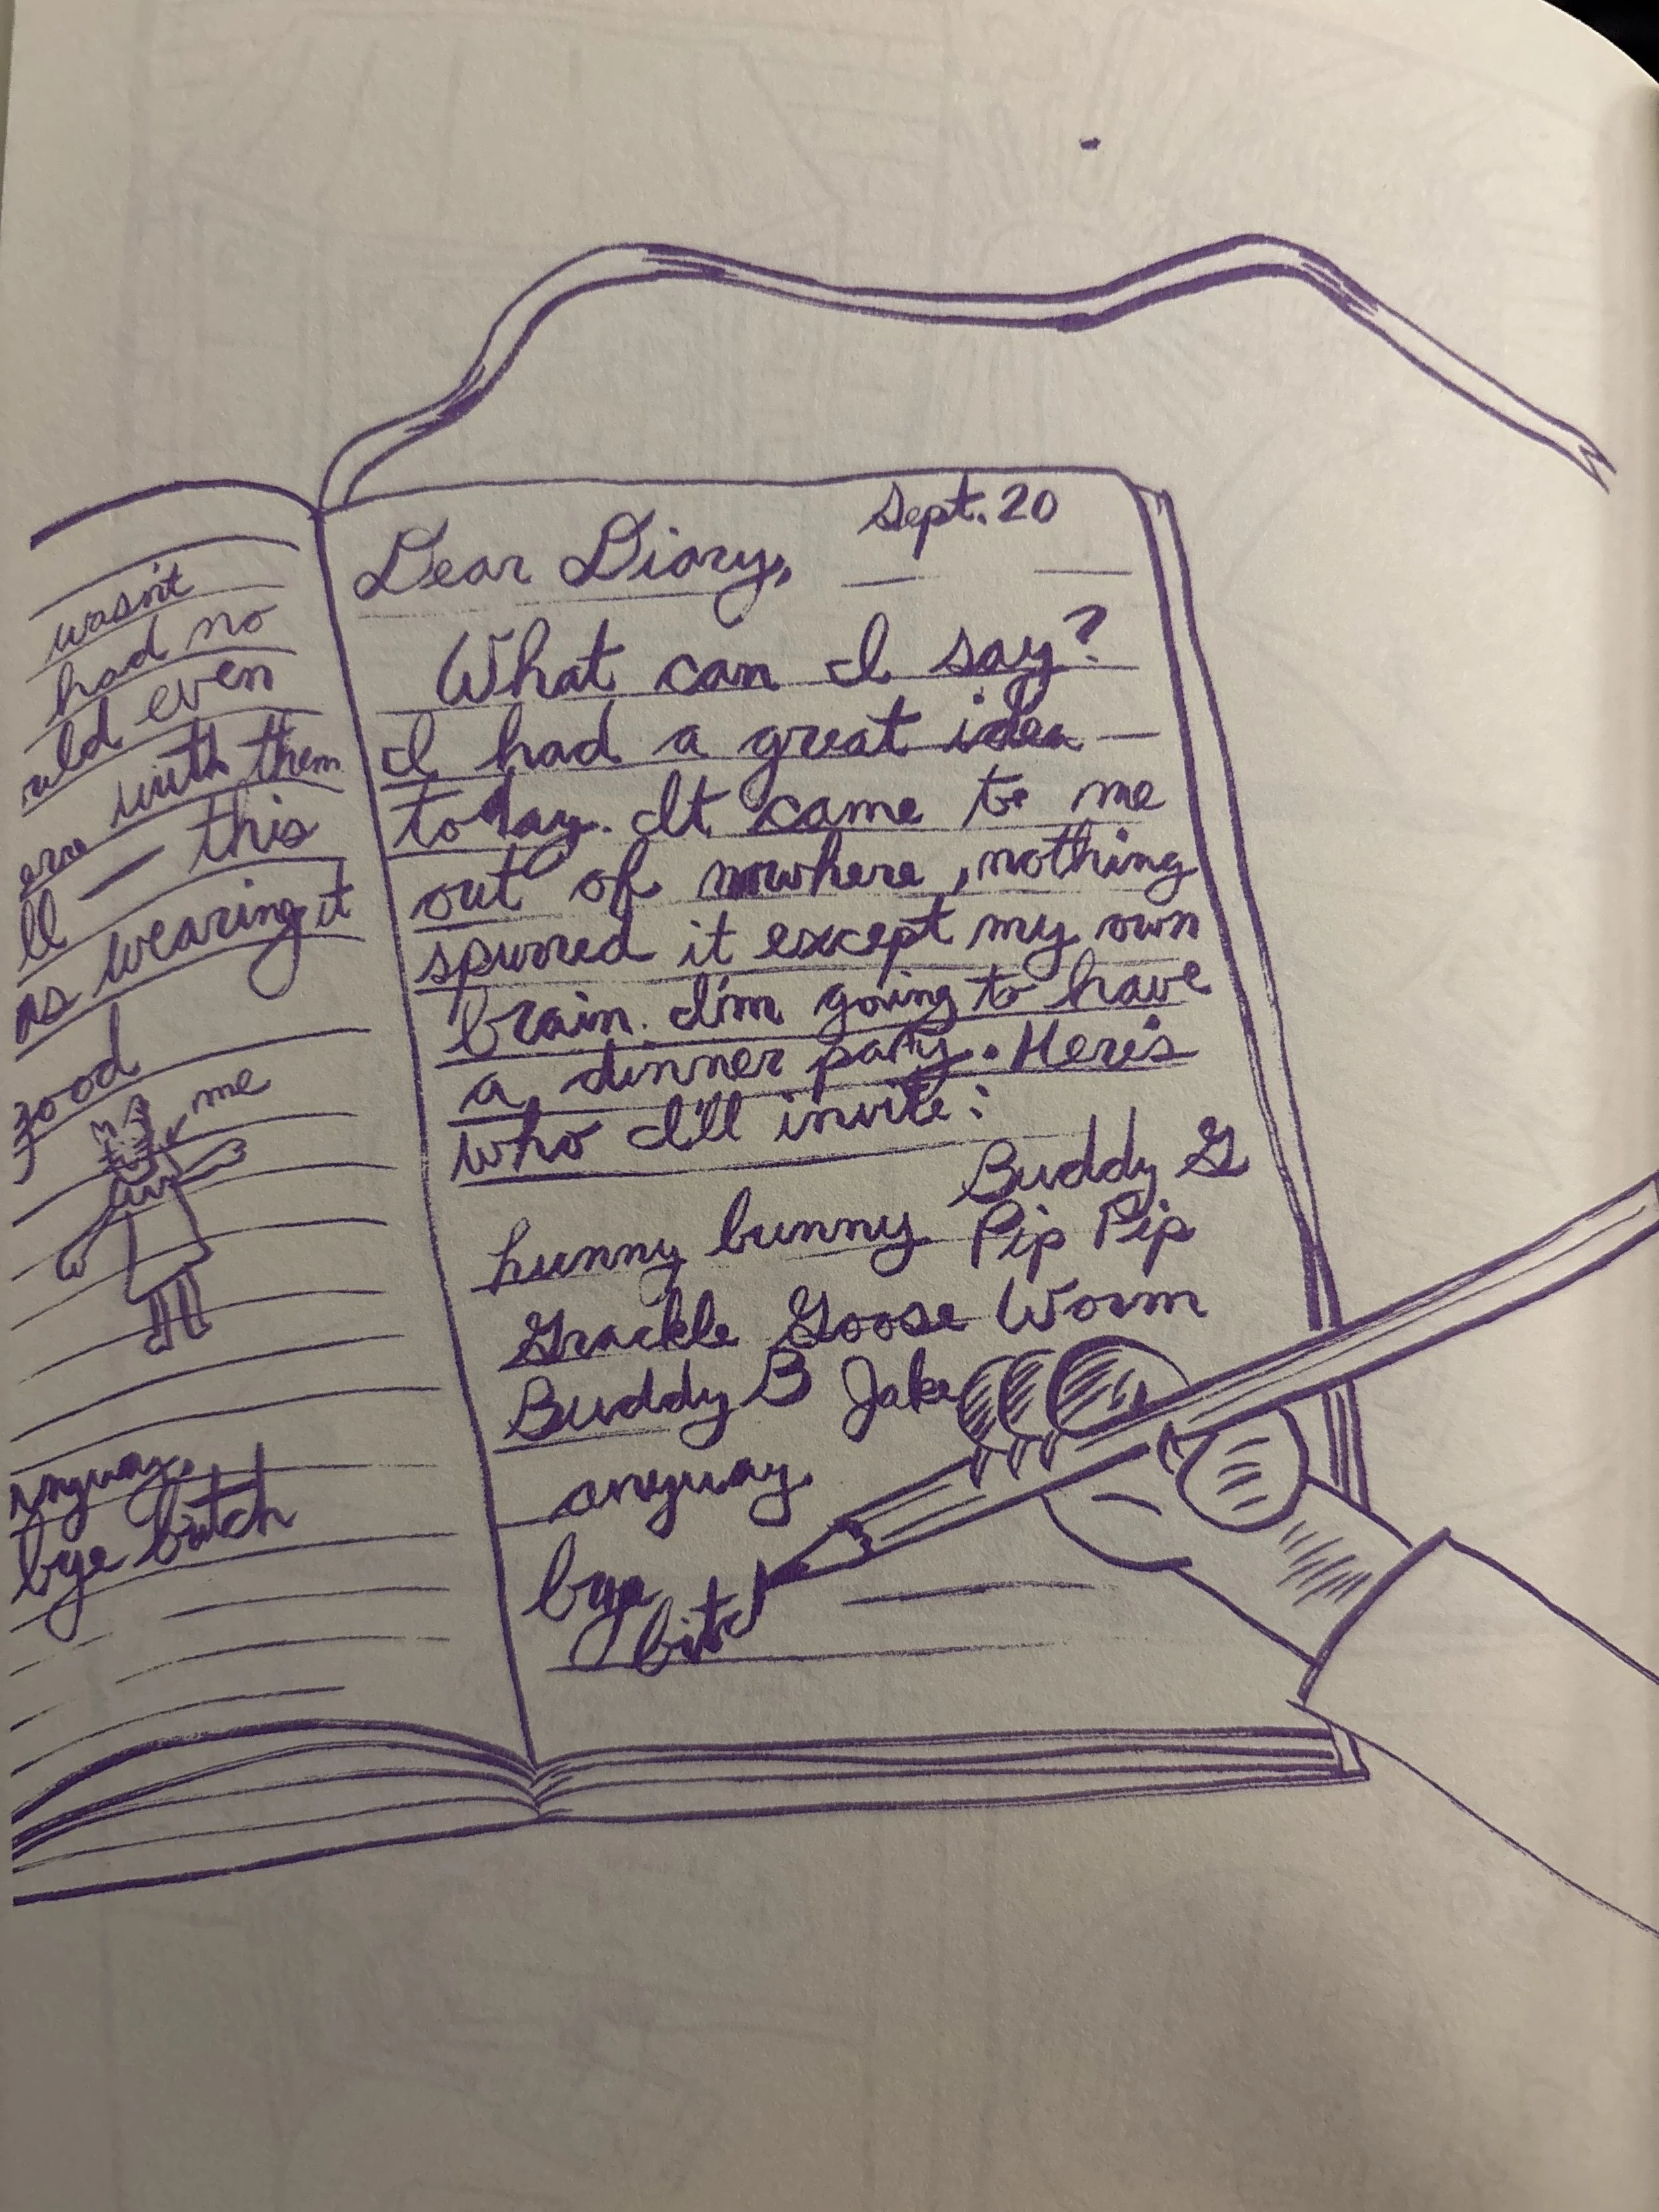 wasn't
had no
uld even
ere with them
ll — this
as wearing it
good
me
anyway.
bye bitch
Sept. 20
Dear Diary,
What can I say?
I had a great idea
today. It came to me
out of nowhere, nothing
spurred it except my own
brain. I'm going to have
a dinner party. Here's
who I'll invite:
Buddy G
hunny bunny Pip Pip
Grackle Goose Worm
Buddy B Jake
anyway
bye
bitc